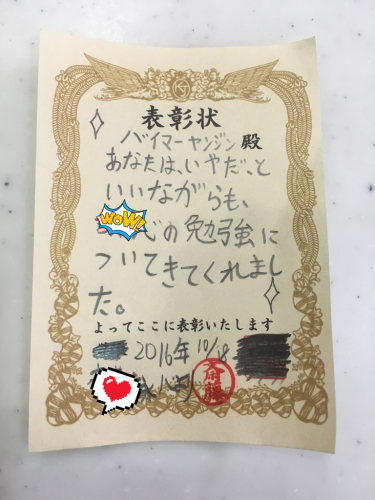 表彰状
バイマーヤンジン殿
あなたは、いやだ、と
いいながらも、
WOW!
心の勉強に
ついてきてくれまし
た。
よってここに表彰いたします
2016年10/18